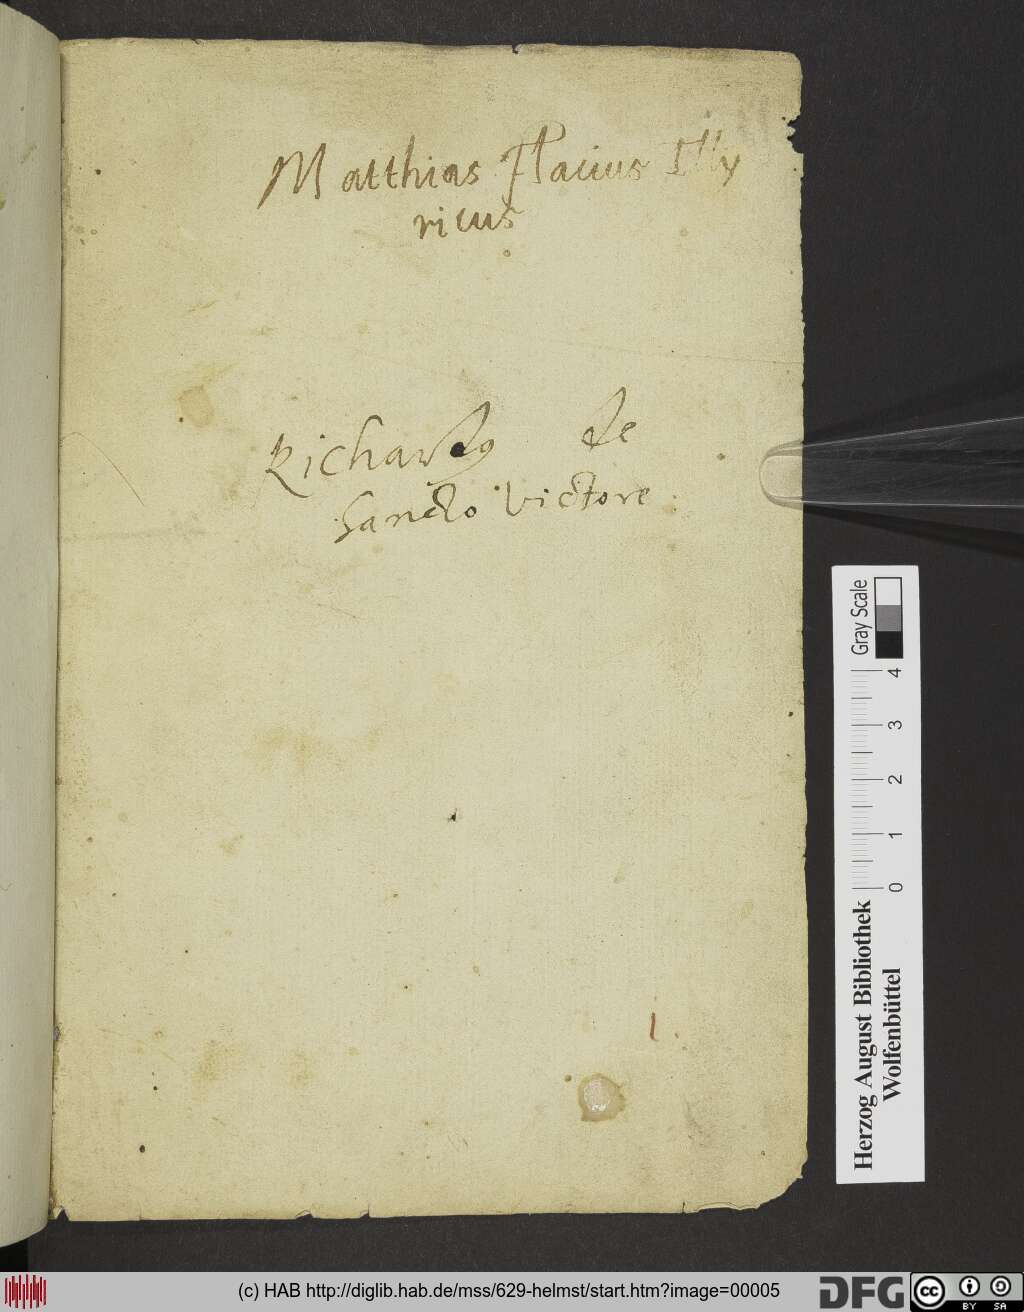 Matthias Flacius Illy
ricus
Richardꝯ de
Sancto Victore
1.
Gray Scale
4
3
2
1
0
Herzog August Bibliothek
Wolfenbüttel
(c) HAB http://diglib.hab.de/mss/629-helmst/start.htm?image=00005
DFG
cc
BY SA